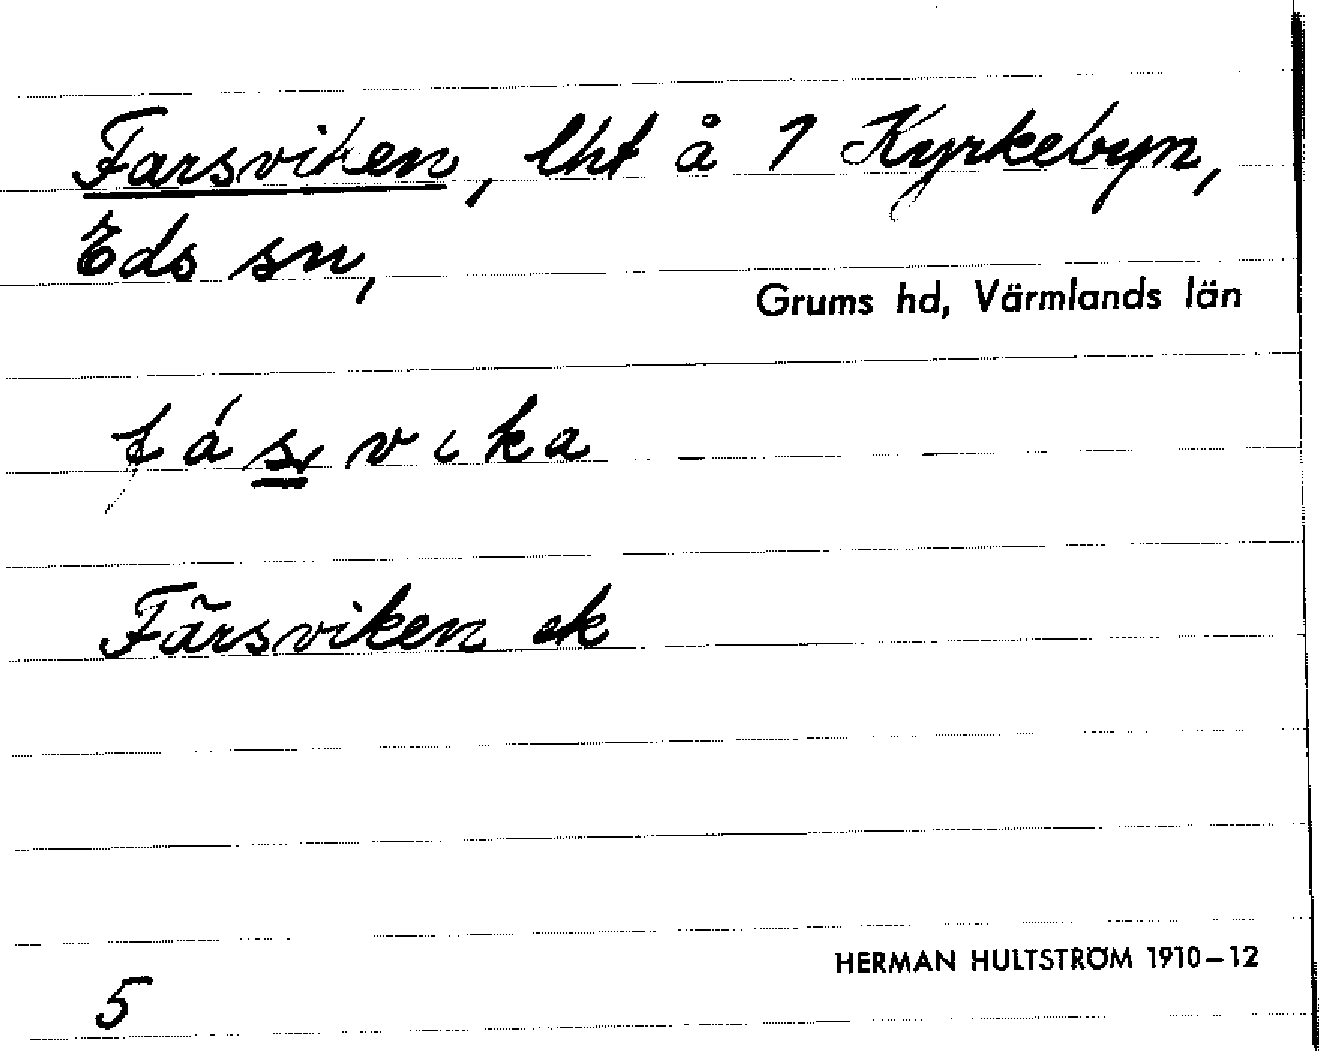 Farsviken, lht å 1 Kyrkebyn,
Eds sn,
Grums hd, Värmlands län
fásvika
Färsviken ek
HERMAN HULTSTRÖM 1910–12
5